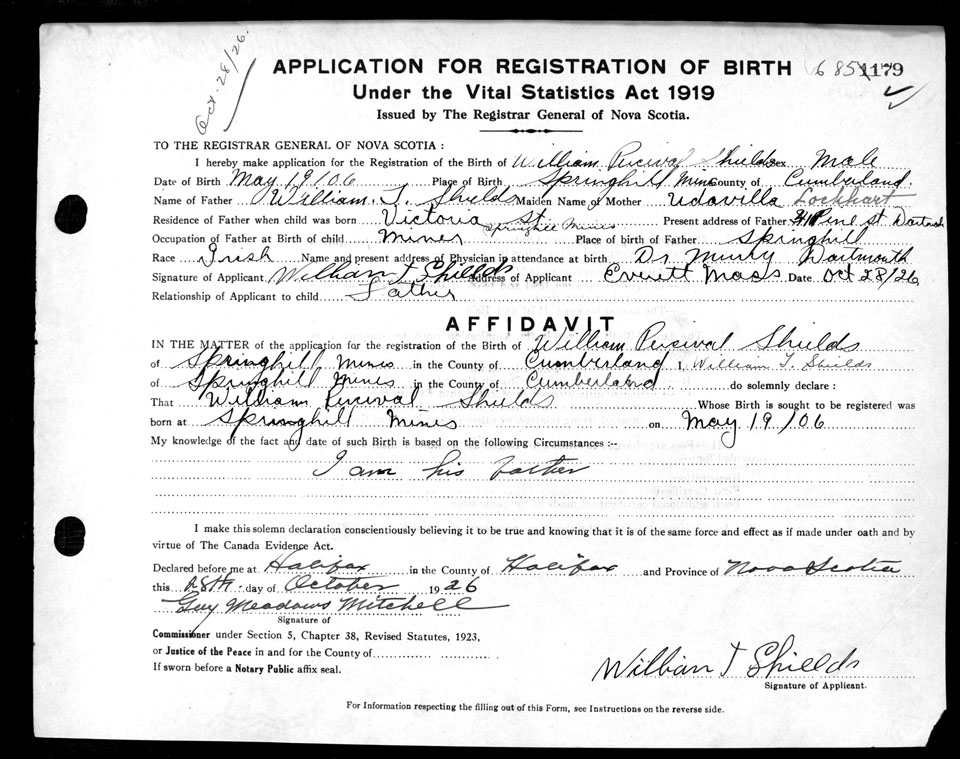 Oct. 28/26.
APPLICATION FOR REGISTRATION OF BIRTH 1179
Under the Vital Statistics Act 1919
Issued by The Registrar General of Nova Scotia.
TO THE REGISTRAR GENERAL OF NOVA SCOTIA :
I hereby make application for the Registration of the Birth of William Percival Shields Sex Male
Date of Birth May 19/06 Place of Birth Springhill Mines County of Cumberland.
Name of Father William. T. Shields Maiden Name of Mother Udavilla Lockhart
Residence of Father when child was born Victoria St. Springhill Mines Present address of Father Pine St Dartmouth
Occupation of Father at Birth of child Miner Place of birth of Father Springhill
Race Irish Name and present address of Physician in attendance at birth Dr. Dartmouth
Signature of Applicant William T Shields Address of Applicant Everett Mass Date Oct 28/26
Relationship of Applicant to child Father
AFFIDAVIT
IN THE MATTER of the application for the registration of Birth of William Percival Shields
of Springhill Mines in the County of Cumberland I, William T. Shields
of Springhill Mines in the County of Cumberland do solemnly declare :
That William Percival Shields Whose Birth is sought to be registered was
born at Springhill Mines on May 19/06
My knowledge of the fact and date of such Birth is based on the following Circumstances :--
I am his father
I make this solemn declaration conscientiously believing it to be true and knowing that it is of the same force and effect as if made under oath and by
virtue of The Canada Evidence Act.
Declared before me at Halifax in the County of Halifax and Province of Nova Scotia
this 28th day of October 1926
Guy Meadows Mitchell
Signature of
Commissioner under Section 5, Chapter 38, Revised Statutes, 1923,
or Justice of the Peace in and for the County of
If sworn before a Notary Public affix seal.
William T Shields
Signature of Applicant.
For Information respecting the filling out of this Form, see Instructions on the reverse side.